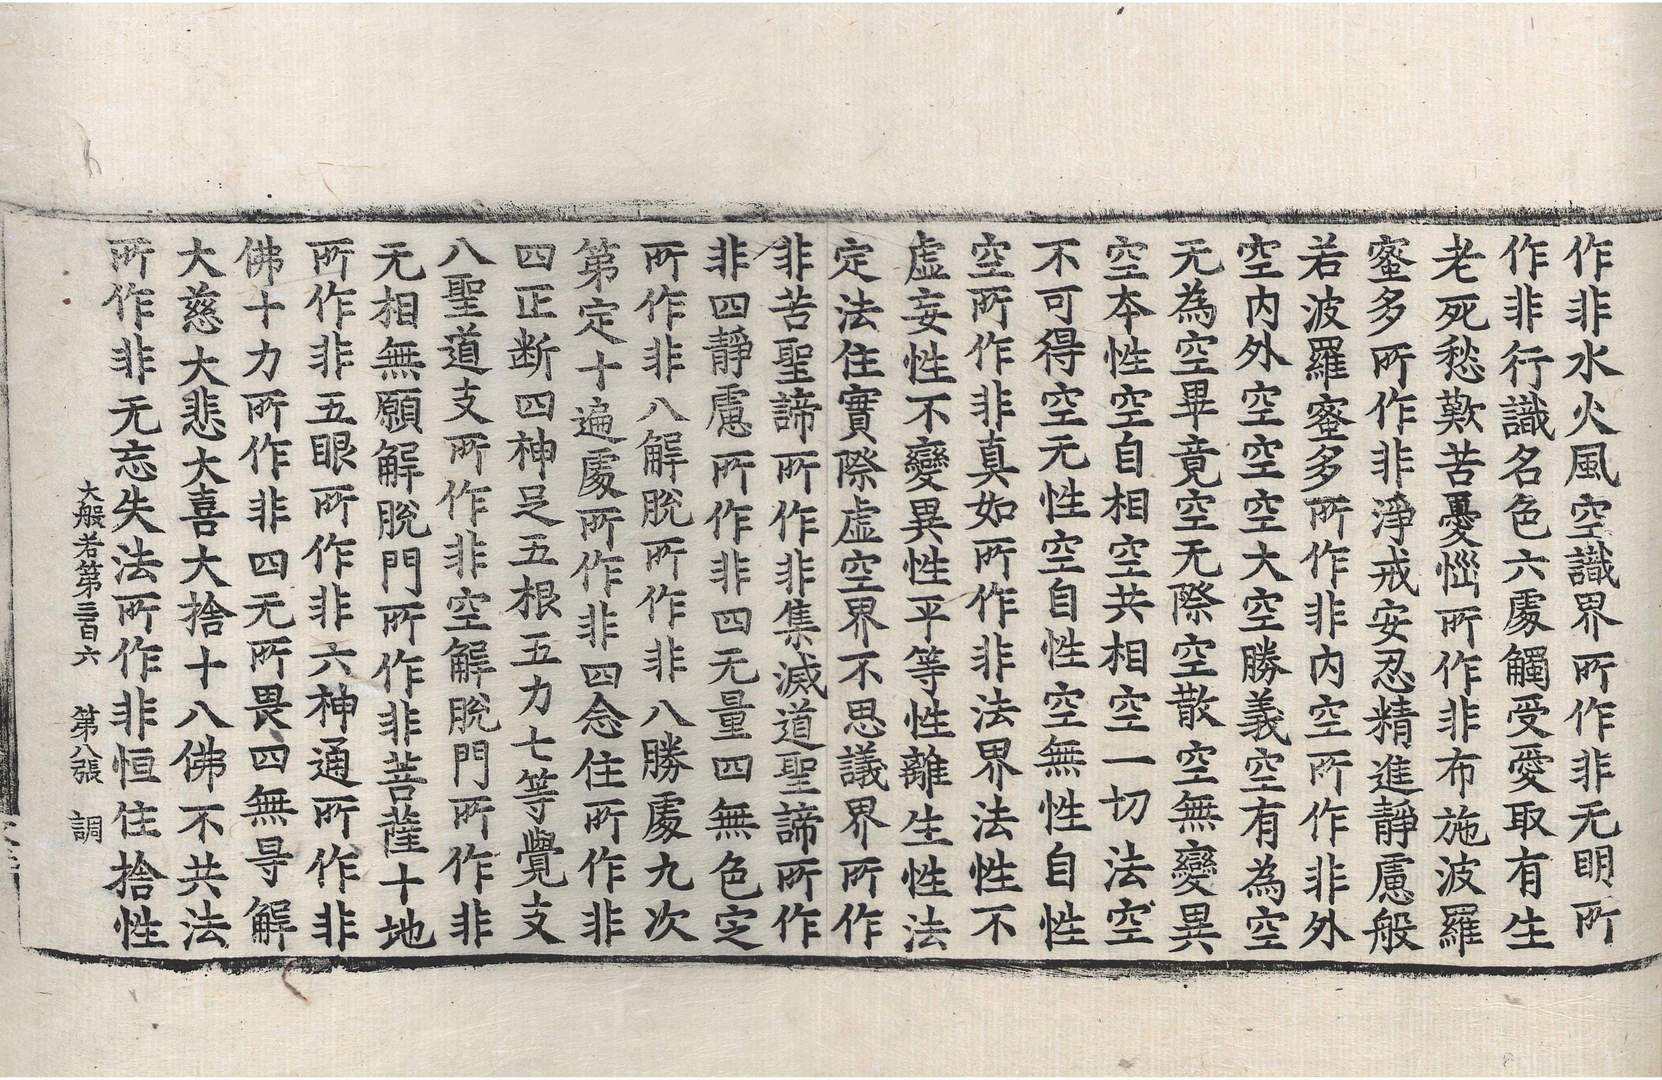 作非水火風空識界所作非无明所
作非行識名色六處觸受愛取有生
老死愁歎苦憂惱所作非布施波羅
蜜多所作非淨戒安忍精進靜慮般
若波羅蜜多所作非內空所作非外
空內外空空空大空勝義空有為空
无為空畢竟空无際空散空無變異
空本性空自相空共相空一切法空
不可得空无性空自性空無性自性
空所作非真如所作非法界法性不
虛妄性不變異性平等性離生性法
定法住實際虛空界不思議界所作
非苦聖諦所作非集滅道聖諦所作
非四靜慮所作非四无量四無色定
所作非八解脫所作非八勝處九次
第定十遍處所作非四念住所作非
四正断四神足五根五力七等覺支
八聖道支所作非空解脫門所作非
无相無願解脫門所作非菩薩十地
所作非五眼所作非六神通所作非
佛十力所作非四无所畏四無㝵解
大慈大悲大喜大捨十八佛不共法
所作非无忘失法所作非恒住捨性
大般若第三百六　第八張　調